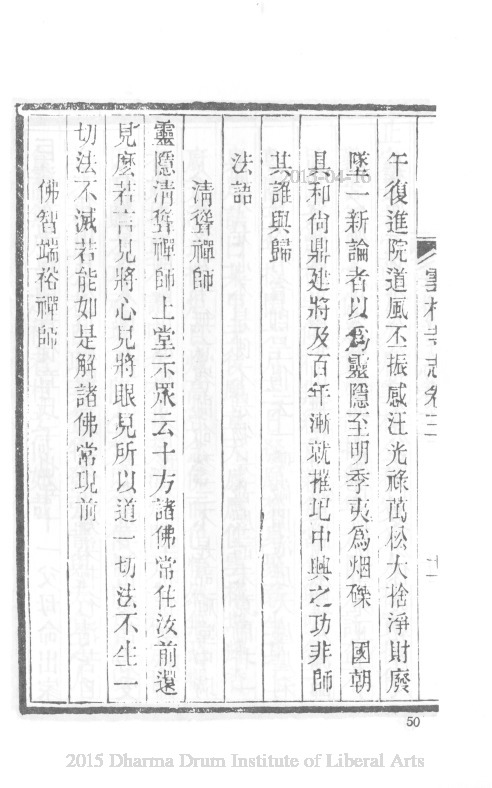 雲林寺志卷三
午復進院道風丕振感汪光祿萬松大捨淨財廢
墜一新論者以爲靈隱至明季夷爲烟磔 國朝
具和尚鼎建將及百年漸就摧圮中興之功非師
其誰與歸
法語
清聳禪師
靈隱清聳禪師上堂示眾云十方諸佛常住汝前還
見麼若言見將心見將眼見所以道一切法不生一
切法不滅若能如是解諸佛常現前
佛智端裕禪師
2015-04-16
50
2015 Dharma Drum Institute of Liberal Arts